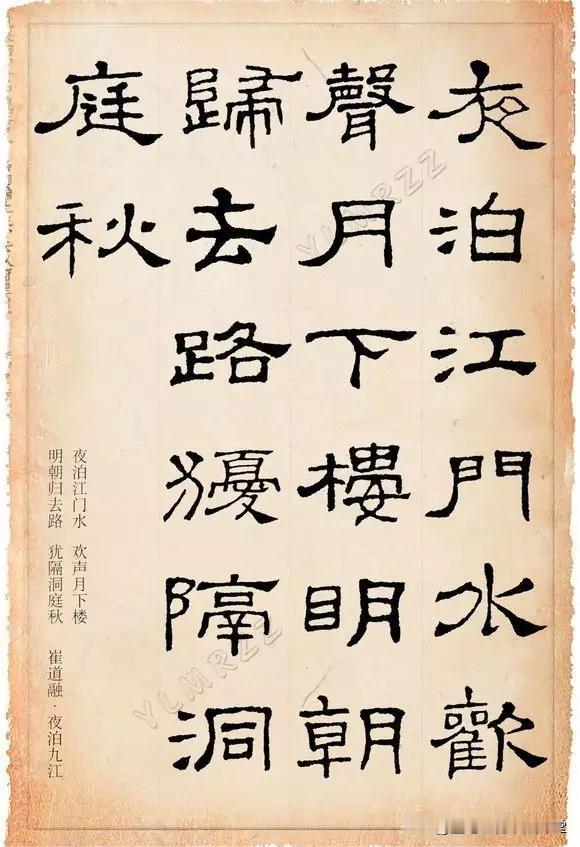 夜泊江門水歡
聲月下樓明朝
歸去路獶隔洞
庭秋
夜泊江门水 欢声月下楼
明朝归去路 犹隔洞庭秋 崔道融·夜泊九江
YLMRZZ
YLMRZZ